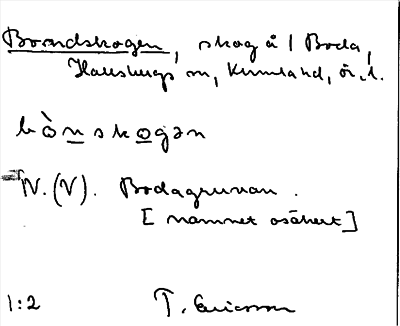 Brandskogen, skog å 1 Boda,
Hallsbergs sn, Kumla hd, ör. l.
bò̀nskogən
N.(V). Bodagruvan.
[namnet osäkert]
1:2 T. Ericsson